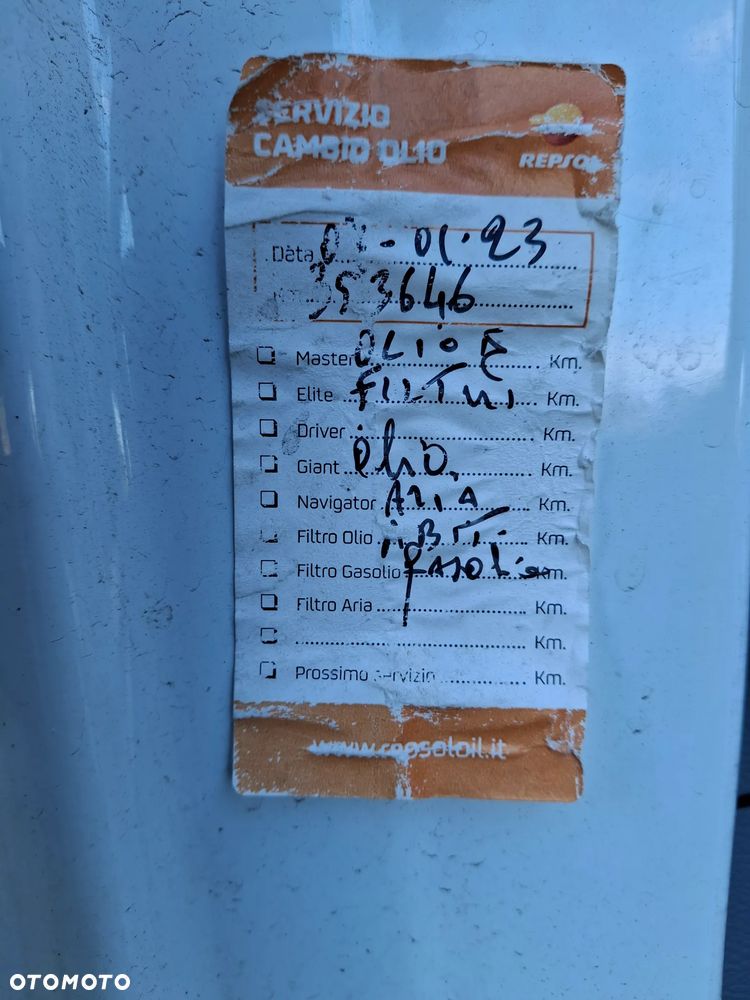 SERVIZIO
CAMBIO OLIO
REPSOL
Data 07-01-23
353646
Master OLIO E Km.
Elite FILTRI Km.
Driver Km.
Giant OLIO, Km.
Navigator ARIA Km.
Filtro Olio ABIT. Km.
Filtro Gasolio GASOLIO Km.
Filtro Aria Km.
Km.
Prossimo servizio Km.
www.repsoloil.it
OTOMOTO